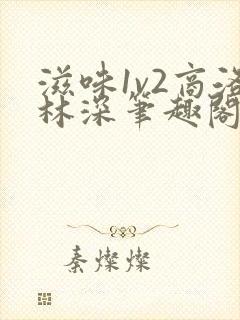 滋味1v2高洛
林深笔趣阁
秦灿灿